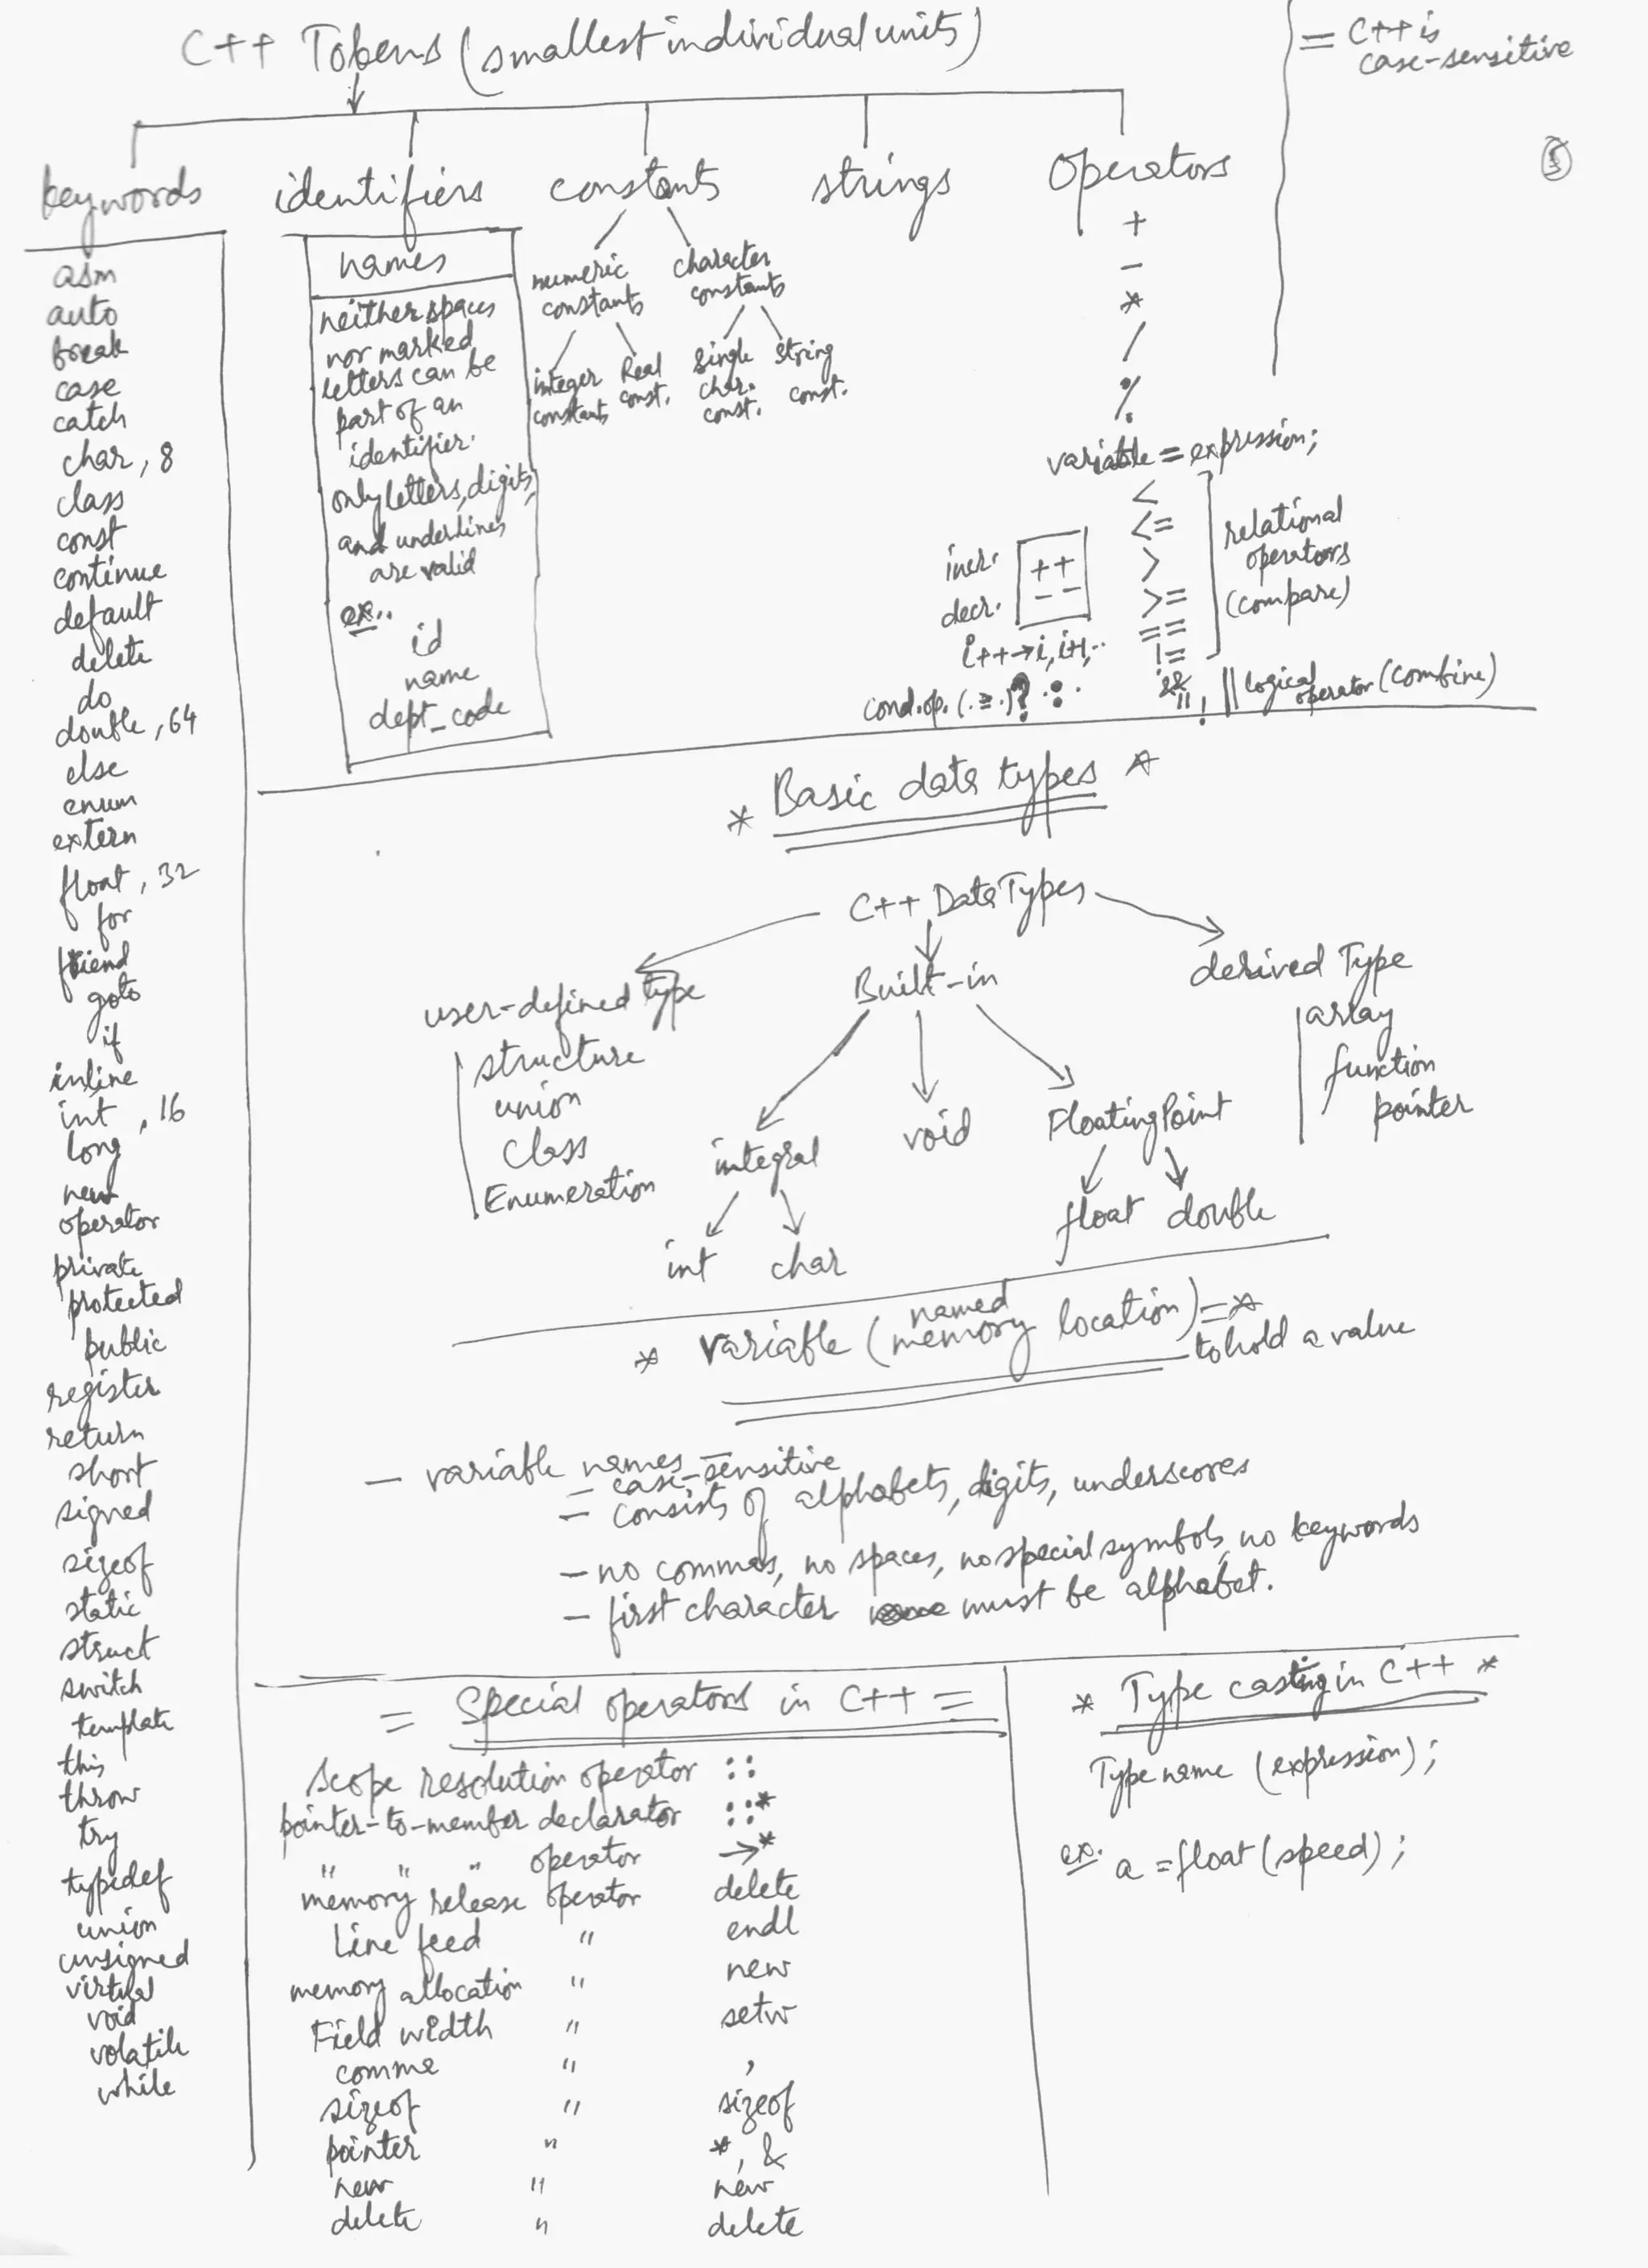 C++ Tokens (smallest individual units)
= C++ is
case-sensitive
5
keywords
asm
auto
break
case
catch
char, 8
class
const
continue
default
delete
do
double, 64
else
enum
extern
float, 32
for
friend
goto
if
inline
int, 16
long
new
operator
private
protected
public
register
return
short
signed
sizeof
static
struct
switch
template
this
throw
try
typedef
union
unsigned
virtual
void
volatile
while
identifiers
names
neither spaces
nor marked
letters can be
part of an
identifier.
only letters, digits,
and underlines
are valid
ex..
id
name
dept_code
constants
numeric
constants
character
constants
integer
constants
Real
const.
single
char.
const.
string
const.
strings
Operators
+
-
*
/
%
variable = expression;
<
<=
>
>=
==
!=
relational
operators
(compare)
incr.
++
decr.
--
i++→i, i+1,..
&& || ! || logical operator (combine)
cond. op. (. ≥ .) ? . : .
* Basic data types *
C++ Data Types
user-defined type
structure
union
class
Enumeration
Built-in
integral
void
Floating Point
int
char
float
double
derived Type
array
function
pointer
* variable (named memory location) = *
to hold a value
- variable names
= case-sensitive
= consists of alphabets, digits, underscores
- no commas, no spaces, no special symbols, no keywords
- first character must be alphabet.
= Special operators in C++ =
scope resolution operator ::
pointer-to-member declarator ::*
" " " operator →*
memory release operator delete
Line feed " endl
memory allocation " new
Field width " setw
comma " ,
sizeof " sizeof
pointer " *, &
new " new
delete " delete
* Type casting in C++ *
Type name (expression);
ex. a = float (speed);